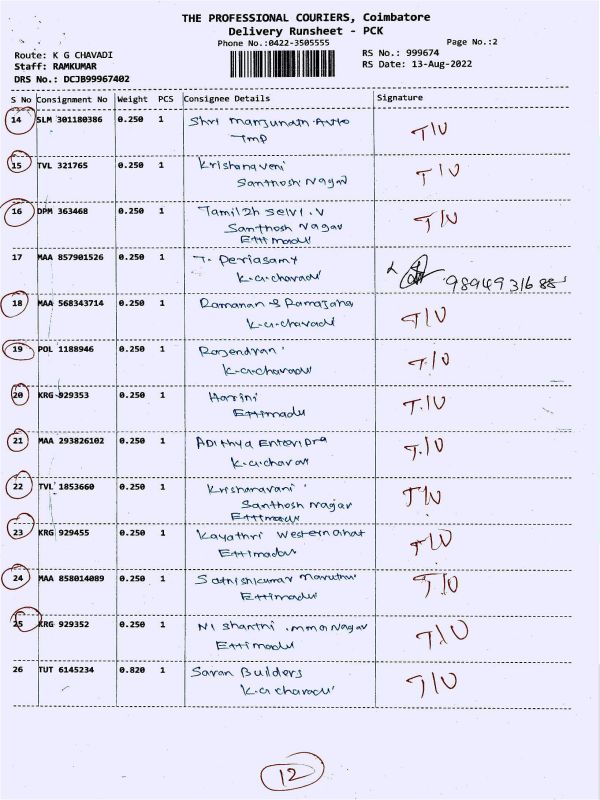 THE PROFESSIONAL COURIERS, Coimbatore
Delivery Runsheet - PCK
Phone No.:0422-3505555
Page No.:2
Route: K G CHAVADI
RS No.: 999674
Staff: RAMKUMAR
RS Date: 13-Aug-2022
DRS No.: DCJB99967402
S No Consignment No Weight PCS Consignee Details Signature
14 SLM 301180386 0.250 1 Shri Manjunath Auto T/U
Tmp
15 TVL 321765 0.250 1 Krishnaveni T/U
Santhosh Nagar
16 DPM 363468 0.250 1 Tamilzh Selvi.V T/U
Santhosh Nagar
Ettimadu
17 MAA 857901526 0.250 1 T. Periasamy
K.G.chavadi 9894931688
18 MAA 568343714 0.250 1 Ramanan S T/U
K.G.chavadi
19 POL 1188946 0.250 1 Rajendran T/U
K.G.chavadi
20 KRG 929353 0.250 1 Harini T.IU
Ettimadu
21 MAA 293826102 0.250 1 Adithya T.IU
K.G.chavadi
22 TVL 1853660 0.250 1 Krishnavani T/U
Santhosh Nagar
Ettimadu
23 KRG 929455 0.250 1 Kayathri T/U
Ettimadu
24 MAA 858014089 0.250 1 Sathishkumar T/U
Ettimadu
25 KRG 929352 0.250 1 Nishanthi . MMA Nagar T/U
Ettimadu
26 TUT 6145234 0.820 1 Saran Builders T/U
K.G chavadi
12